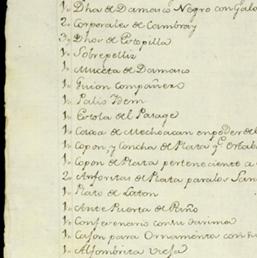 1„ Dha de Damasco Negro con Galo
2„ Corporales de Cambray
3„ Dhos de Estopilla
1„ Sobrepelliz
1„ Muceta de Damasco
1„ Guion Compañera
1„ Palio Idem
1„ Estola del Parage
1„ de Mechoacan en poder de
1„ Copon, y Concha de Plata y
1„ Copon de Plata perteneciente a
2„ Anforitas de Plata para los San
1„ Plato de Laton
1„ Ante Puerta de Pino
1„ Confesonario con
1„ Cajon para Ornamentos con
1„ Alfombrita vieja